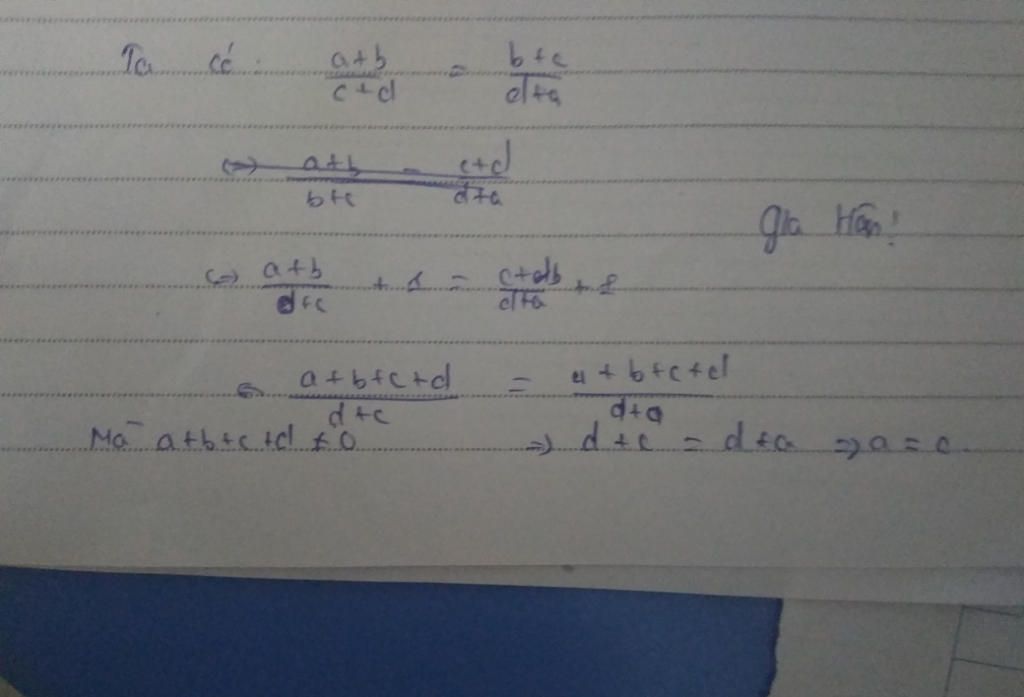 Ta có: a+b / c+d = b+c / d+a
<=> a+b / b+c = c+d / d+a
Gia Hân!
<=> a+b / d+c + 1 = c+b / d+a + 1
<= a+b+c+d / d+c = a+b+c+d / d+a
Mà a+b+c+d ≠ 0 => d+c = d+a => a = c.